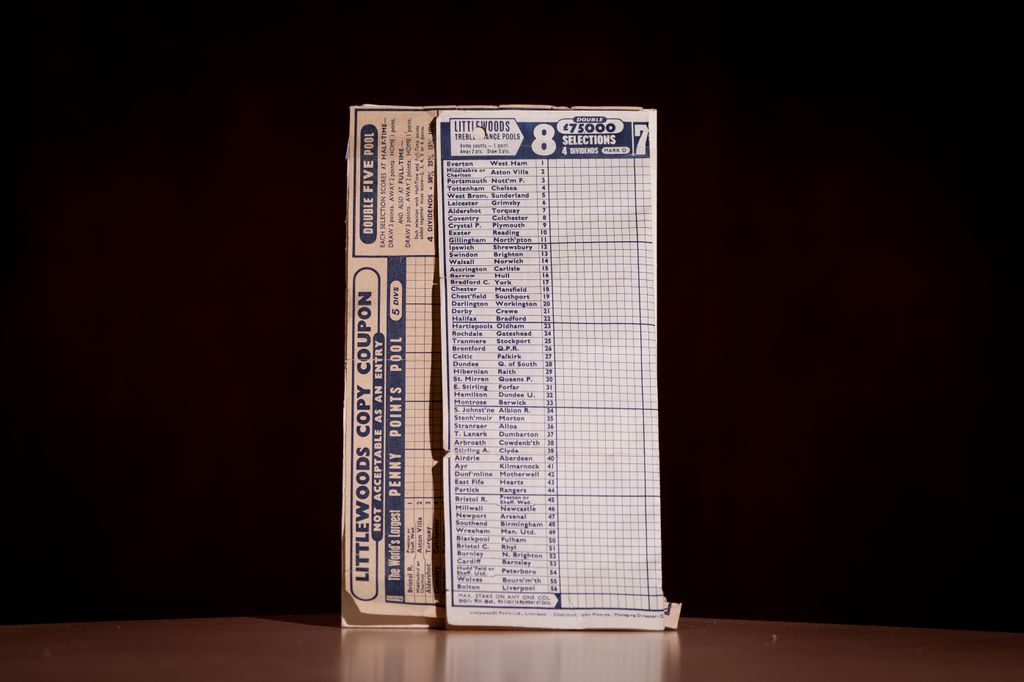 DOUBLE FIVE POOL
EACH SELECTION SCORES AT HALF-TIME—
DRAW 3 points. AWAY 2 points. HOME 1 point.
AND ALSO AT FULL-TIME—
DRAW 3 points. AWAY 2 points. HOME 1 point.
4 DIVIDENDS
LITTLEWOODS COPY COUPON
NOT ACCEPTABLE AS AN ENTRY
The World's Largest PENNY POINTS POOL 5 DIVS
Bristol R. Preston or Sheff. Wed. 1
Middlesbro or Charlton Aston Villa 2
Aldershot Torquay 3
LITTLEWOODS
TREBLE CHANCE POOLS
Home counts — 1 point.
Away 2 pts. Draw 3 pts.
8
DOUBLE
£75000
SELECTIONS
4 DIVIDENDS MARK O
7
Everton West Ham 1
Middlesbro or Charlton Aston Villa 2
Portsmouth Nott'm F. 3
Tottenham Chelsea 4
West Brom. Sunderland 5
Leicester Grimsby 6
Aldershot Torquay 7
Coventry Colchester 8
Crystal P. Plymouth 9
Exeter Reading 10
Gillingham North'pton 11
Ipswich Shrewsbury 12
Swindon Brighton 13
Walsall Norwich 14
Accrington Carlisle 15
Barrow Hull 16
Bradford C. York 17
Chester Mansfield 18
Chest'field Southport 19
Darlington Workington 20
Derby Crewe 21
Halifax Bradford 22
Hartlepools Oldham 23
Rochdale Gateshead 24
Tranmere Stockport 25
Brentford Q.P.R. 26
Celtic Falkirk 27
Dundee Q. of South 28
Hibernian Raith 29
St. Mirren Queens P. 30
E. Stirling Forfar 31
Hamilton Dundee U. 32
Montrose Berwick 33
S. Johnst'ne Albion R. 34
Stenh'muir Morton 35
Stranraer Alloa 36
T. Lanark Dumbarton 37
Arbroath Cowdenb'th 38
Stirling A. Clyde 39
Airdrie Aberdeen 40
Ayr Kilmarnock 41
Dunf'mline Motherwell 42
East Fife Hearts 43
Partick Rangers 44
Bristol R. Preston or Sheff. Wed. 45
Millwall Newcastle 46
Newport Arsenal 47
Southend Birmingham 48
Wrexham Man. Utd. 49
Blackpool Fulham 50
Bristol C. Rhyl 51
Burnley N. Brighton 52
Cardiff Barnsley 53
Hudd'field or Sheff. Utd. Peterboro 54
Wolves Bourn'm'th 55
Bolton Liverpool 56
MAX. STAKE ON ANY ONE COL.
20/- Min. 6d. No limit to Number of Cols.
Littlewoods Pools Ltd., Liverpool - Chairman: John Moores. Managing Director: C